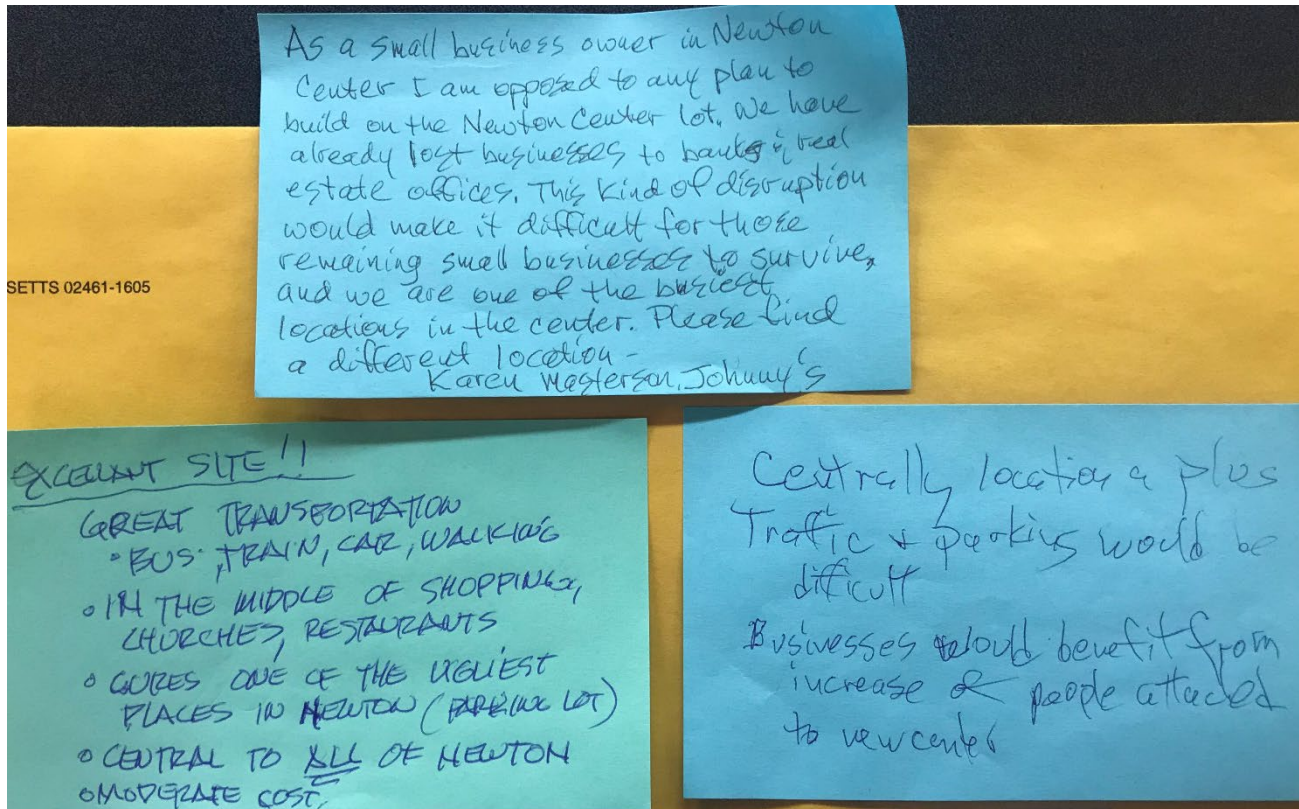 As a small business owner in Newton
Center I am opposed to any plan to
build on the Newton Center lot. We have
already lost businesses to banks & real
estate offices. This kind of disruption
would make it difficult for those
remaining small businesses to survive,
and we are one of the busiest
locations in the center. Please find
a different location -
Karen Masterson, Johnny's
SETTS 02461-1605
EXCELLANT SITE!!
GREAT TRANSPORTATION
• BUS, TRAIN, CAR, WALKING
• IN THE MIDDLE OF SHOPPING,
CHURCHES, RESTAURANTS
• CURES ONE OF THE UGLIEST
PLACES IN NEWTON (PARKING LOT)
• CENTRAL TO ALL OF NEWTON
• MODERATE COST,
Centrally location a plus
Traffic + parking would be
difficult
Businesses would benefit from
increase of people attaced
to new center